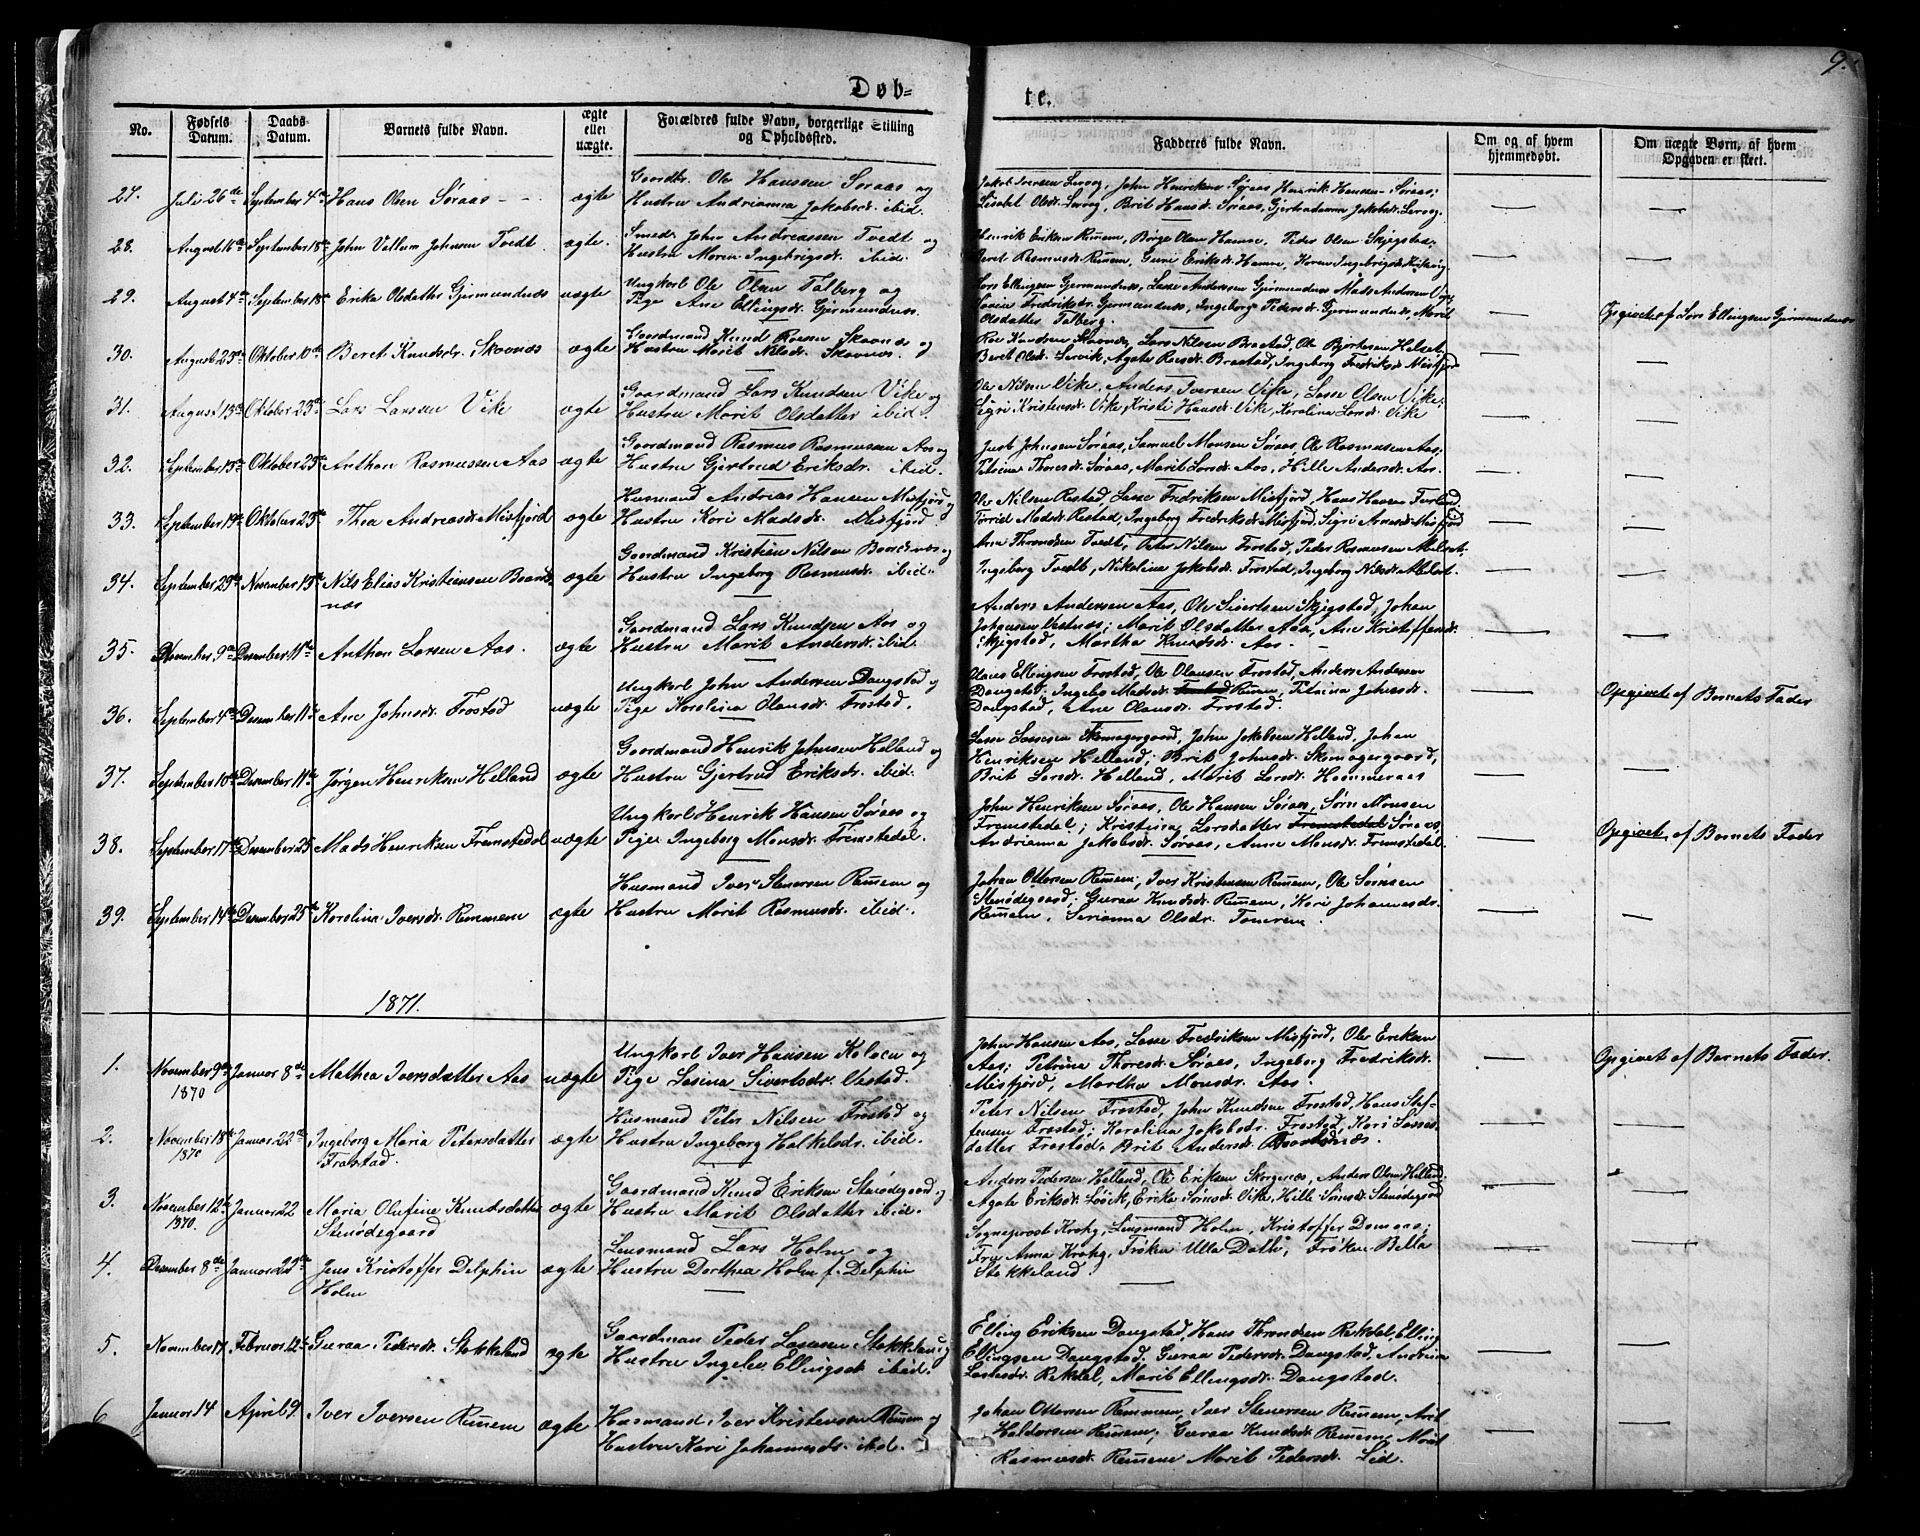 9.
Døb-
te.
No.
Fødsels Datum.
Daabs Datum.
Barnets fulde Navn.
ægte eller uægte.
Forældres fulde Navn, borgerlige Stilling og Opholdssted.
Fadderes fulde Navn.
Om og af hvem hjemmedøbt.
Om uægte Børn, af hvem Opgaven er skeet.
27. Juli 26de September 4de Hans Olsen Søraas ægte
Gaardbr. Ole Hanssen Soraas og
Hustru Andrianna Jakobsdr. ibid.
Jakob Iversen Lervog, John Henriksen Søraas, Henrik Hansen Søraas;
Lisabet Olsdr. Lervog, Brit Hansdr. Søraas, Gjertrudanna Jakobsdr. Lervog.
28. August 16de September 18de John Vellum Johnsen Tvedt ægte.
Smed John Andreassen Tvedt og
Hustru Maren Ingebrigtsdr. ibid.
Henrik Eriksen Remem, Børge Olsen Hamne, Peder Olsen Skjegstad;
Beret Rasmusdr. Remem, Guri Eriksdr. Hamne, Karen Ingebrigtsdr.
29. August 4de September 18de Erika Olsdatter Gjermundnæs uægte
Ungkarl Ole Olsen Talberg og
Pige Ane Ellingsdr. Gjermundnæs.
Lars Ellingsen Gjermundnæs, Lasse Andersen Gjermundnæs Mads Andersen
Fredriksdr. Gjermundnæs, Ingeborg Pedersdr. Gjermundnæs, Marit
Olsdatter Talberg.
Opgivet af Lars Ellingsen Gjermundnæs
30. August 23de Oktober 10de Beret Knudsdr. Skavnæs ægte
Gaardmand Knud Roesen Skavnæs og
Hustru Marit Nilsdr. Skavnæs.
Roe Knudsen Skavnæs, Lars Nilsen Brastad, Ole Bjørnsen Helset,
Beret Olsdr. Lervik, Agate Roesdr. Brastad, Ingeborg Fredriksdr. Misfjord
31. August 13de Oktober 23de Lars Larsen Vike ægte
Gaardmand Lars Knudsen Vike og
Hustru Marit Olsdatter ibid.
Ole Nilsen Vike, Anders Iversen Vike, Lasse Olsen Vike;
Sigri Kristensdr. Vike, Kristi Hansdr. Vike, Karolina Larsdr. Vike
32. September 15de Oktober 23de Anthon Rasmussen Aas ægte
Gaardmand Rasmus Rasmussen Aas og
Hustru Gjertrud Eriksdr. ibid.
Just Johnsen Søraas, Samuel Monsen Søraas, Ole Rasmussen Aas;
Petrina Thoresdr. Søraas, Marit Larsdr. Aas, Hille Andersdr. Aas.
33. September 19de Oktober 23de Thea Andreasdr. Misfjord ægte
Husmand Andreas Hansen Misfjord og
Hustru Kari Madsdr. Misfjord
Ole Nilsen Restad, Lasse Fredriksen Misfjord, Hans Hansen
Torrid Madsdr. Restad, Ingeborg Fredriksdr. Misfjord, Sigri Arnesdr. Misfjord
34. September 29de November 13de Nils Elias Kristensen Baards-
næs ægte
Gaardmand Kristen Nilsen Baardsnæs og
Hustru Ingeborg Rasmusdr. ibid.
Arne Throndsen Tvedt, Peter Nilsen Frostad, Peder Rasmussen Melset.
Ingeborg Tvedt, Nikolina Jakobsdr. Frostad, Ingeborg Nilsdr. Melset.
35. November 9de Desember 11de Anthon Larsen Aas. ægte
Gaardmand Lars Knudsen Aas og
Hustru Marit Andersdr. ibid.
Anders Andersen Aas, Ole Sivertsen Skjegstad, Johan
Johansen Vestnæs; Marit Olsdatter Aas, Ane Kristoffersdr.
Skjegstad, Martha Knudsdr. Aas.
36. September 4de Desember 11de Ane Johnsdr. Frostad uægte
Ungkarl John Andersen Daugstad og
Pige Karolina Olausdr. Frostad.
Claus Ellingsen Frostad, Ole Olausen Frostad, Anders Andersen
Daugstad; Ingeb. Madsdr. Frostad Remem, Petrina Johnsdr.
Daugstad, Ane Olausdr. Frostad.
Opgivet af Barnets Fader
37. September 10de Desember 11de Jørgen Henriksen Helland ægte
Gaardmand Henrik Johnsen Helland og
Hustru Gjertrud Eriksdr. ibid.
Lasse Lassesen Skomagergaard, John Jakobsen Helland, Johan
Henriksen Helland; Brit Johnsdr. Skomagergaard,
Brit Larsdr. Helland, Marit Larsdr. Hammeraas
38. September 17de Desember 25de Mads Henriksen Fremstedal uægte
Ungkarl Henrik Hansen Søraas og
Pige Ingeborg Monsdr. Fremstedal.
John Henriksen Søraas, Ole Hansen Søraas, Søren Monsen
Fremstedal; Kristina Larsdatter Fremstedal Søraas,
Andrianna Jakobsdr. Søraas, Anne Monsdr. Fremstedal.
Opgivet af Barnets Fader
39. September 14de Desember 25de Karolina Iversdr. Remmem ægte
Husmand Iver Stenersen Remem og
Hustru Marit Rasmusdr. ibid.
Johan Ottersen Remem, Iver Kristensen Remem, Ole Sørnsen
Stenødegaard; Guraa Knudsdr. Remem, Kari Johannesdr.
Remem, Serianna Olsdr.
1871.
1. November 9de 1870 Januar 8de Mathea Iversdatter Aas uægte
Ungkarl Iver Hansen og
Pige Lasina Sivertsdr. Vestad.
John Hansen Aas, Lasse Fredriksen Misfjord, Ole Eriksen
Aas; Petrina Thoresdr. Søraas, Ingeborg Fredriksdr.
Misfjord, Martha Monsdr. Aas.
Opgivet af Barnets Fader.
2. November 18de 1870 Januar 22de Ingeborg Maria Petersdatter
Frostad. ægte
Husmand Peter Nilsen Frostad og
Hustru Ingeborg Halkelsdr. ibid.
Peter Nilsen Frostad, John Knudsen Frostad, Hans Stef-
fensen Frostad; Karolina Jakobsdr. Frostad, Kari Lasses-
datter Frostad, Brit Andersdr. Baardsnæs.
3. November 12te 1870. Januar 22 Maria Olufine Knudsdatter
Stenødegaard ægte
Gaardmand Knud Eriksen Stenødegaard og
Hustru Marit Olsdatter ibid.
Anders Pedersen Helland, Ole Eriksen Skorgenæs, Anders Olsen Helland.
Agate Eriksdr. Leirvik, Erika Sørnsdr. Vike, Hille Sørnsdr. Stenødegaard
4. Desember 8de Januar 22de Jens Kristoffer Delphin
Holm ægte
Lensmand Lars Holm og
Hustru Dorthea Holm f. Delphin
Sogneprest Krohg, Lensmand Holm, Kristoffer Damaas;
Fru Anna Krohg, Frøken Ulla Dath, Frøken Bella
Stokkeland.
5. November 17 Februar 12te Guraa Pedersdr. Stokkeland ægte
Gaardman Peder Lassesen Stokkeland og
Hustru Ingelev Ellingsdr. ibid.
Elling Eriksen Daugstad, Hans Throndsen Rekdal, Elling
Ellingsen Daugstad, Guraa Pedersdr. Daugstad, Andrina
Lassesdr. Rekdal, Marit Ellingsdr. Daugstad.
6. Januar 14 April 9. Iver Iversen Remem ægte
Husmand Iver Kristensen Remem og
Hustru Kari Johannesdr. ibid.
Johan Ottersen Remmem, Iver Stenersen Remem, Arit
Haldorsen Remem; Guraa Knudsdr. Remem, Marit
Rasmusdr. Remem Marit Pedersdr. Lid.